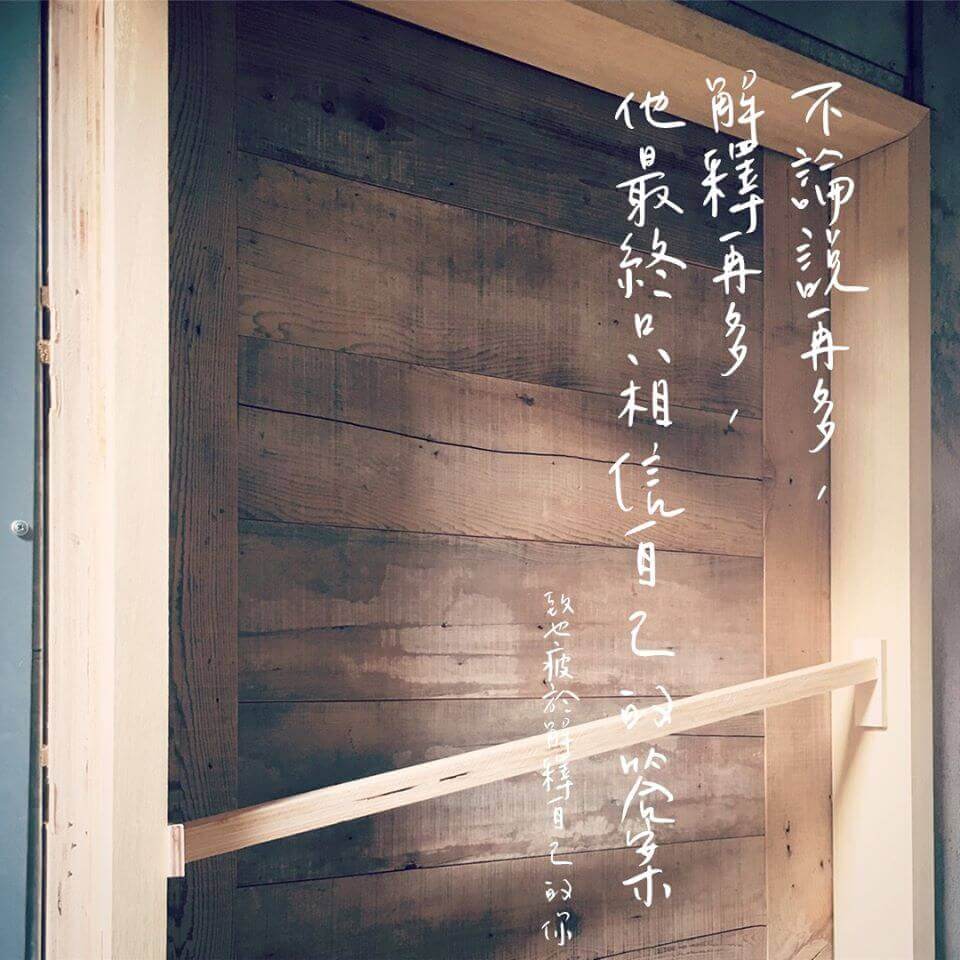 不論說再多，
解釋再多，
他最終只相信自己的答案
致也疲於解釋自己的你